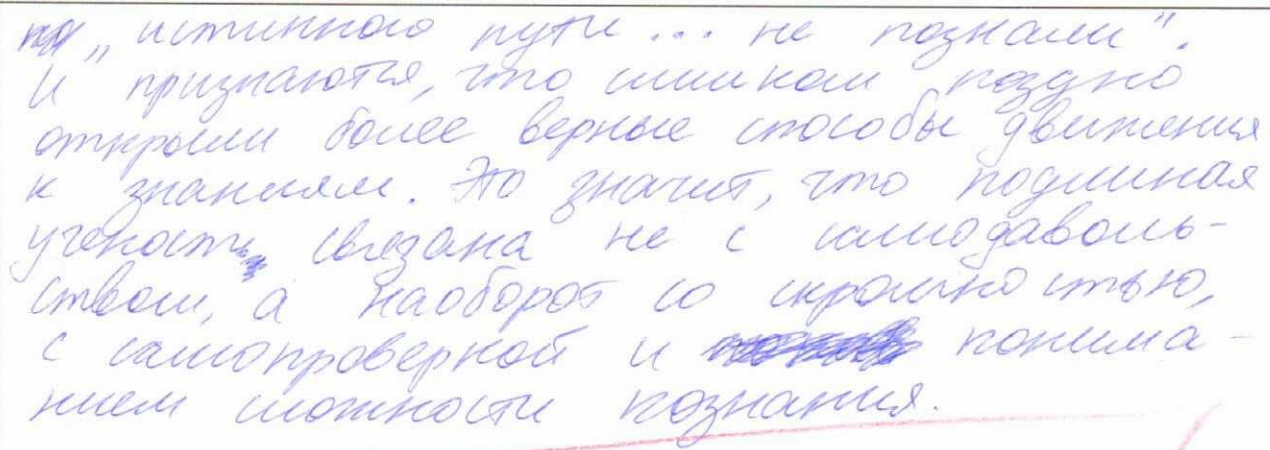 „истинного пути... не познали".
И признаются, что слишком поздно
открыли более верные способы движения
к знаниям. Это значит, что подлинная
ученость связана не с самодаволь-
ством, а наоборот со скромностью,
с самопроверкой и понима-
нием сложности познания.